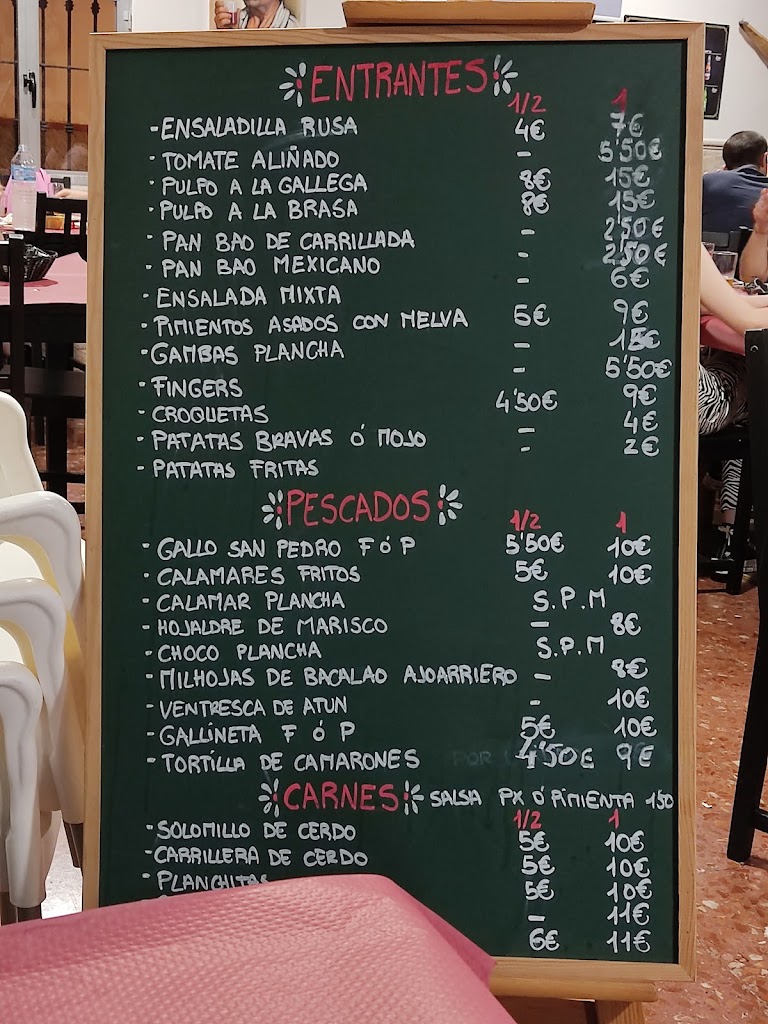 ENTRANTES
1/2 1
- ENSALADILLA RUSA 4€ 7€
- TOMATE ALIÑADO - 5'50€
- PULPO A LA GALLEGA 8€ 15€
- PULPO A LA BRASA 8€ 15€
- PAN BAO DE CARRILLADA - 2'50€
- PAN BAO MEXICANO - 2'50€
- ENSALADA MIXTA - 6€
- PIMIENTOS ASADOS CON MELVA 5€ 9€
- GAMBAS PLANCHA - 15€
- FINGERS - 5'50€
- CROQUETAS 4'50€ 9€
- PATATAS BRAVAS Ó MOJO - 4€
- PATATAS FRITAS - 2€
PESCADOS
1/2 1
- GALLO SAN PEDRO F Ó P 5'50€ 10€
- CALAMARES FRITOS 5€ 10€
- CALAMAR PLANCHA S.P.M
- HOJALDRE DE MARISCO - 8€
- CHOCO PLANCHA S.P.M
- MILHOJAS DE BACALAO AJOARRIERO - 8€
- VENTRESCA DE ATUN - 10€
- GALLINETA F Ó P 5€ 10€
- TORTILLA DE CAMARONES POR 4'50€ 9€
CARNES SALSA PX Ó PIMIENTA 1'50
1/2 1
- SOLOMILLO DE CERDO 5€ 10€
- CARRILLERA DE CERDO 5€ 10€
- PLANCHITAS 5€ 10€
- 11€
6€ 11€